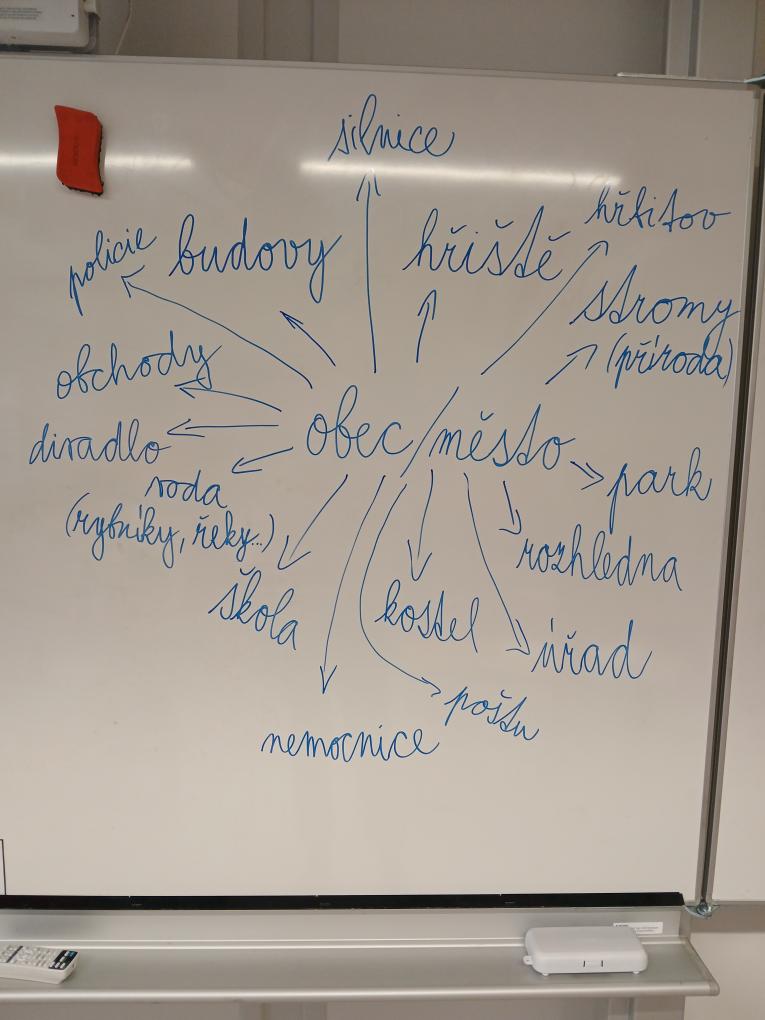 silnice
hřbitov
policie
budovy
hřiště
stromy
(příroda)
obchody
obec/město
divadlo
park
voda
(rybníky, řeky...)
rozhledna
škola
kostel
úřad
pošta
nemocnice